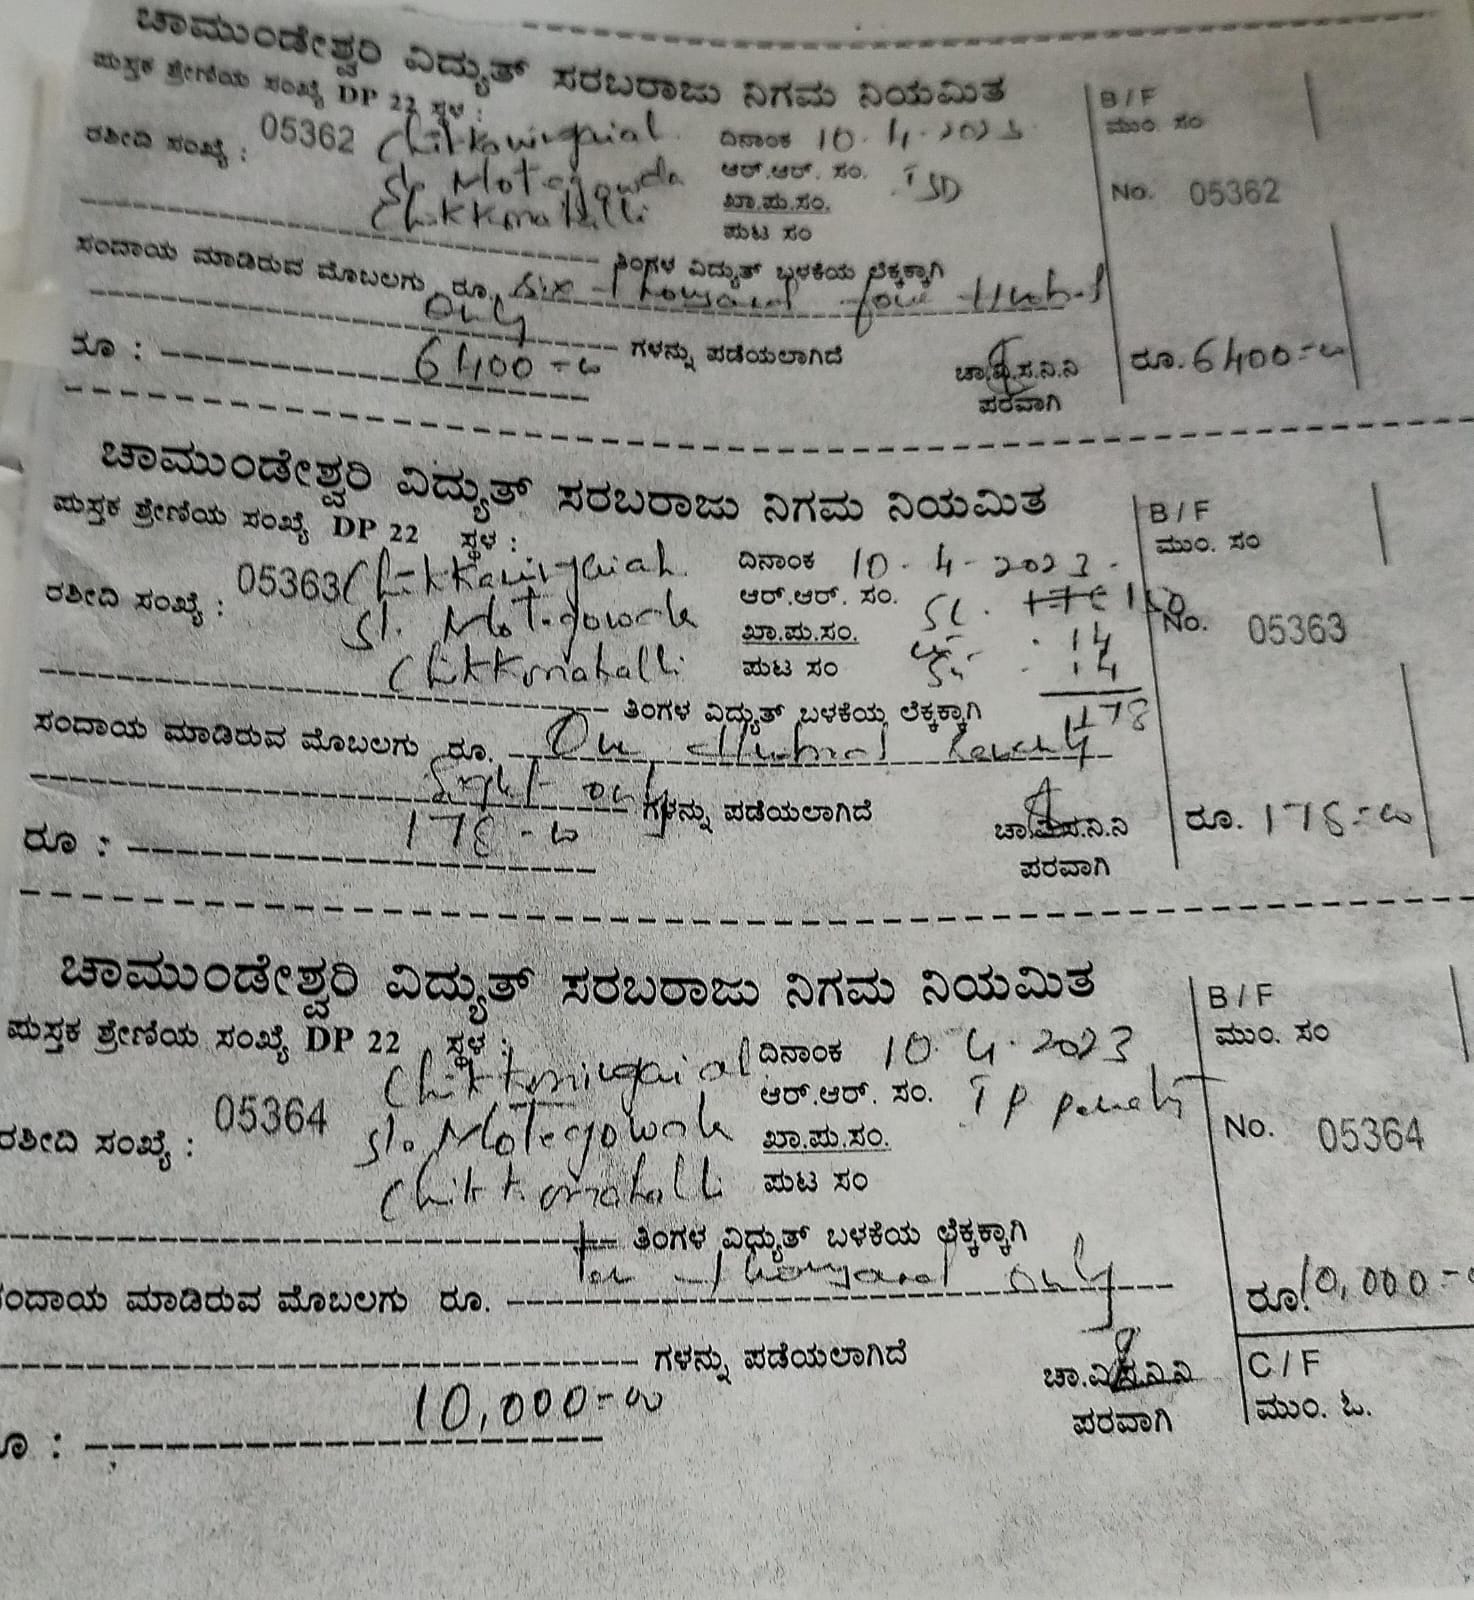 ಚಾಮುಂಡೇಶ್ವರಿ ವಿದ್ಯುತ್ ಸರಬರಾಜು ನಿಗಮ ನಿಯಮಿತ
ಪುಸ್ತಕ ಶ್ರೇಣಿಯ ಸಂಖ್ಯೆ DP 22 ಸ್ಥಳ :
ರಶೀದಿ ಸಂಖ್ಯೆ : 05362
ದಿನಾಂಕ 10.4.2023
ಆರ್.ಆರ್. ಸಂ. ISD
ಖಾ.ಪು.ಸಂ.
ಪುಟ ಸಂ
S/o Motegowda
Chikkmahalli
ತಿಂಗಳ ವಿದ್ಯುತ್ ಬಳಕೆಯ ಲೆಕ್ಕಕ್ಕಾಗಿ
ಸಂದಾಯ ಮಾಡಿರುವ ಮೊಬಲಗು ರೂ. Six Thousand four
only
ಗಳನ್ನು ಪಡೆಯಲಾಗಿದೆ
ರೂ : 6400-00
ಚಾ.ವಿ.ಸ.ನಿ.ನಿ
ಪರವಾಗಿ
B / F
ಮುಂ. ಸಂ
No. 05362
ರೂ. 6400-00
ಚಾಮುಂಡೇಶ್ವರಿ ವಿದ್ಯುತ್ ಸರಬರಾಜು ನಿಗಮ ನಿಯಮಿತ
ಪುಸ್ತಕ ಶ್ರೇಣಿಯ ಸಂಖ್ಯೆ DP 22 ಸ್ಥಳ :
ರಶೀದಿ ಸಂಖ್ಯೆ : 05363
ದಿನಾಂಕ 10.4.2023.
ಆರ್.ಆರ್. ಸಂ.
ಖಾ.ಪು.ಸಂ. 14
ಪುಟ ಸಂ 14
178
S/o Motegowda
Chikkmahalli
ತಿಂಗಳ ವಿದ್ಯುತ್ ಬಳಕೆಯ ಲೆಕ್ಕಕ್ಕಾಗಿ
ಸಂದಾಯ ಮಾಡಿರುವ ಮೊಬಲಗು ರೂ. One
only
ಗಳನ್ನು ಪಡೆಯಲಾಗಿದೆ
ರೂ : 178-00
ಚಾ.ವಿ.ಸ.ನಿ.ನಿ
ಪರವಾಗಿ
B / F
ಮುಂ. ಸಂ
No. 05363
ರೂ. 178-00
ಚಾಮುಂಡೇಶ್ವರಿ ವಿದ್ಯುತ್ ಸರಬರಾಜು ನಿಗಮ ನಿಯಮಿತ
ಪುಸ್ತಕ ಶ್ರೇಣಿಯ ಸಂಖ್ಯೆ DP 22 ಸ್ಥಳ :
ರಶೀದಿ ಸಂಖ್ಯೆ : 05364
ದಿನಾಂಕ 10.4.2023
ಆರ್.ಆರ್. ಸಂ. IP
ಖಾ.ಪು.ಸಂ.
ಪುಟ ಸಂ
S/o Motegowda
Chikkmahalli
ತಿಂಗಳ ವಿಧ್ಯುತ್ ಬಳಕೆಯ ಲೆಕ್ಕಕ್ಕಾಗಿ
ಸಂದಾಯ ಮಾಡಿರುವ ಮೊಬಲಗು ರೂ. Ten Thousand only
ಗಳನ್ನು ಪಡೆಯಲಾಗಿದೆ
ರೂ : 10,000-00
ಚಾ.ವಿ.ಸ.ನಿ.ನಿ
ಪರವಾಗಿ
B / F
ಮುಂ. ಸಂ
No. 05364
ರೂ. 10,000-00
C / F
ಮುಂ. ಓ.